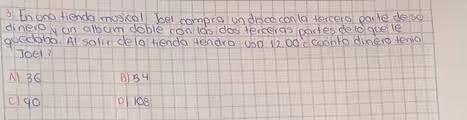 3. En una tienda musical Joel compra un disco con la tercera parte de su
dinero y un album doble con las dos terceras partes de lo que le
quedaba. Al salir de la tienda tendra USD 12.00 ¿Cuánto dinero tenia
Joel?
A) 36 B) 54
C) 90 D) 108